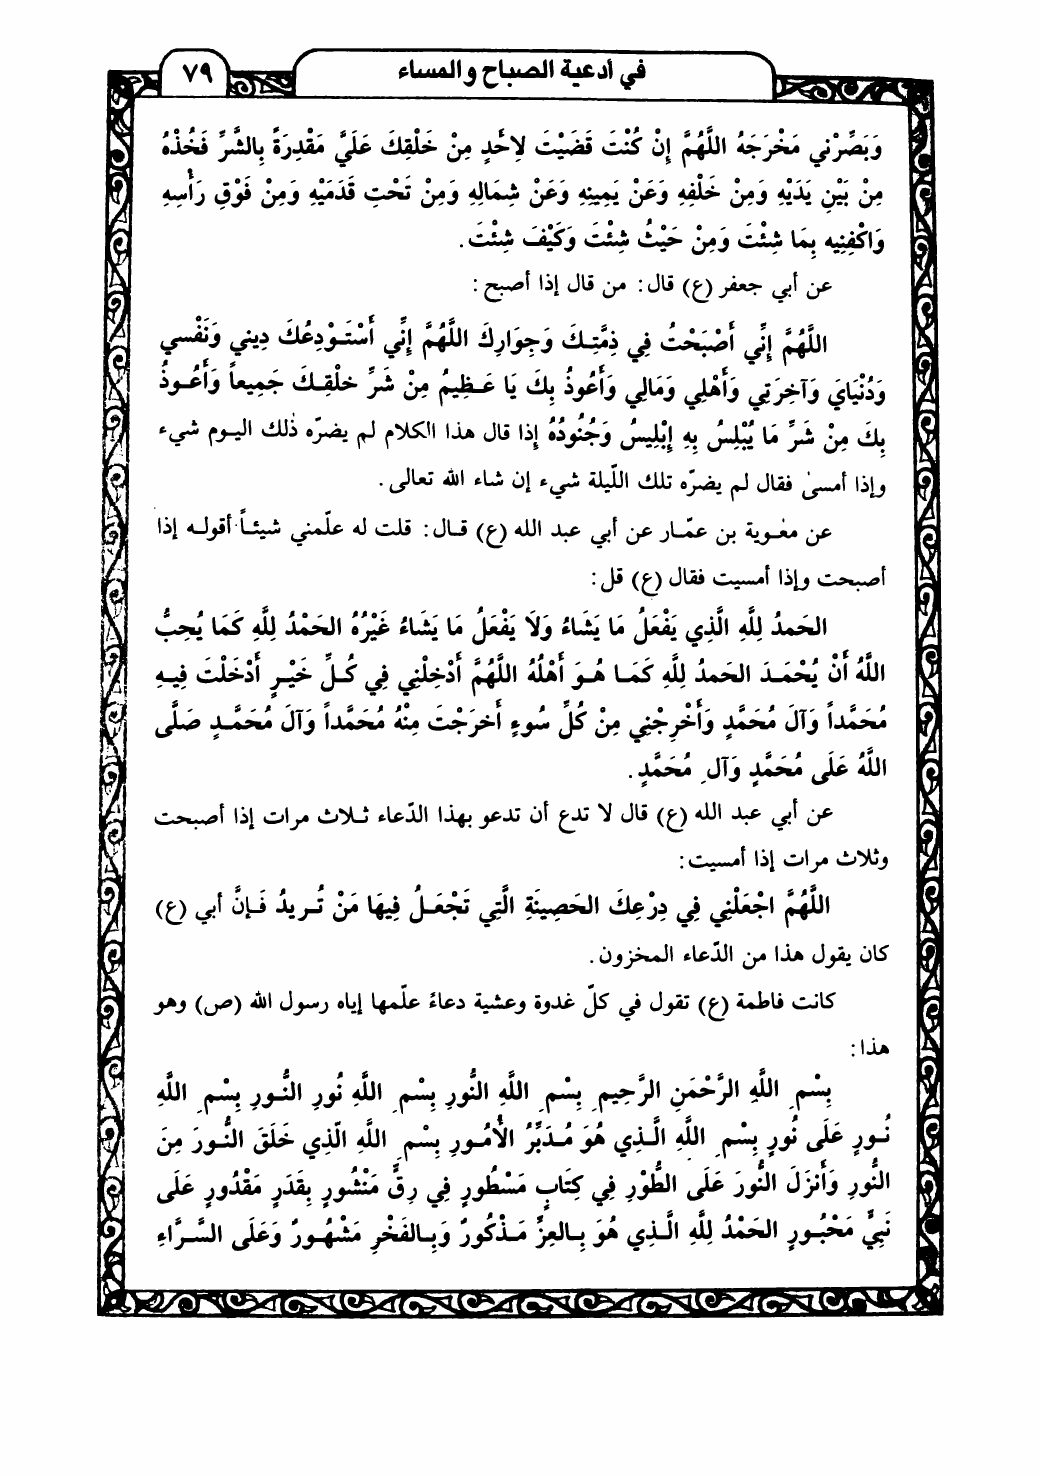 في أدعية الصباح والمساء ٧٩
وَبَصِّرْنِي مَخْرَجَهُ اللَّهُمَّ إِنْ كُنْتَ قَضَيْتَ لِأَحَدٍ مِنْ خَلْقِكَ عَلَيَّ مَقْدِرَةً بِالشَّرِّ فَخُذْهُ
مِنْ بَيْنِ يَدَيْهِ وَمِنْ خَلْفِهِ وَعَنْ يَمِينِهِ وَعَنْ شِمَالِهِ وَمِنْ تَحْتِ قَدَمَيْهِ وَمِنْ فَوْقِ رَأْسِهِ
وَاكْفِنِيهِ بِمَا شِئْتَ وَمِنْ حَيْثُ شِئْتَ وَكَيْفَ شِئْتَ.
عن أبي جعفر (ع) قال: من قال إذا أصبح:
اللَّهُمَّ إِنِّي أَصْبَحْتُ فِي ذِمَّتِكَ وَجِوَارِكَ اللَّهُمَّ إِنِّي أَسْتَوْدِعُكَ دِينِي وَنَفْسِي
وَدُنْيَايَ وَآخِرَتِي وَأَهْلِي وَمَالِي وَأَعُوذُ بِكَ يَا عَظِيمُ مِنْ شَرِّ خَلْقِكَ جَمِيعاً وَأَعُوذُ
بِكَ مِنْ شَرِّ مَا يُبْلِسُ بِهِ إِبْلِيسُ وَجُنُودُهُ إذا قال هذا الكلام لم يضرّه ذٰلك اليوم شيء
وإذا أمسىٰ فقال لم يضرّه تلك اللّيلة شيء إن شاء الله تعالى.
عن معٰوية بن عمّار عن أبي عبد الله (ع) قال: قلت له علّمني شيئاً أقوله إذا
أصبحت وإذا أمسيت فقال (ع) قل:
الحَمدُ لِلَّهِ الَّذِي يَفْعَلُ مَا يَشَاءُ وَلَا يَفْعَلُ مَا يَشَاءُ غَيْرُهُ الحَمْدُ لِلَّهِ كَمَا يُحِبُّ
اللَّهُ أَنْ يُحْمَدَ الحَمدُ لِلَّهِ كَمَا هُوَ أَهْلُهُ اللَّهُمَّ أَدْخِلْنِي فِي كُلِّ خَيْرٍ أَدْخَلْتَ فِيهِ
مُحَمَّداً وَآلَ مُحَمَّدٍ وَأَخْرِجْنِي مِنْ كُلِّ سُوءٍ أَخرَجْتَ مِنْهُ مُحَمَّداً وَآلَ مُحَمَّدٍ صَلَّى
اللَّهُ عَلَى مُحَمَّدٍ وَآلِ مُحَمَّدٍ.
عن أبي عبد الله (ع) قال لا تدع أن تدعو بهذا الدّعاء ثلاث مرات إذا أصبحت
وثلاث مرات إذا أمسيت:
اللَّهُمَّ اجْعَلْنِي فِي دِرْعِكَ الحَصِينَةِ الَّتِي تَجْعَلُ فِيهَا مَنْ تُرِيدُ فَإنَّ أبي (ع)
كان يقول هذا من الدّعاء المخزون.
كانت فاطمة (ع) تقول في كلّ غدوة وعشية دعاءً علّمها إياه رسول الله (ص) وهو
هذا:
بِسْمِ اللَّهِ الرَّحْمَنِ الرَّحِيمِ بِسْمِ اللَّهِ النُّورِ بِسْمِ اللَّهِ نُورِ النُّورِ بِسْمِ اللَّهِ
نُورٍ عَلَى نُورٍ بِسْمِ اللَّهِ الَّذِي هُوَ مُدَبِّرُ الأُمُورِ بِسْمِ اللَّهِ الَّذِي خَلَقَ النُّورَ مِنَ
النُّورِ وَأَنزَلَ النُّورَ عَلَى الطُّوْرِ فِي كِتَابٍ مَسْطُورٍ فِي رِقٍّ مَنْشُورٍ بِقَدَرٍ مَقْدُورٍ عَلَى
نَبِيٍّ مَحْبُورٍ الحَمْدُ لِلَّهِ الَّذِي هُوَ بِالعِزِّ مَذْكُورٌ وَبِالفَخْرِ مَشْهُورٌ وَعَلَى السَّرَّاءِ